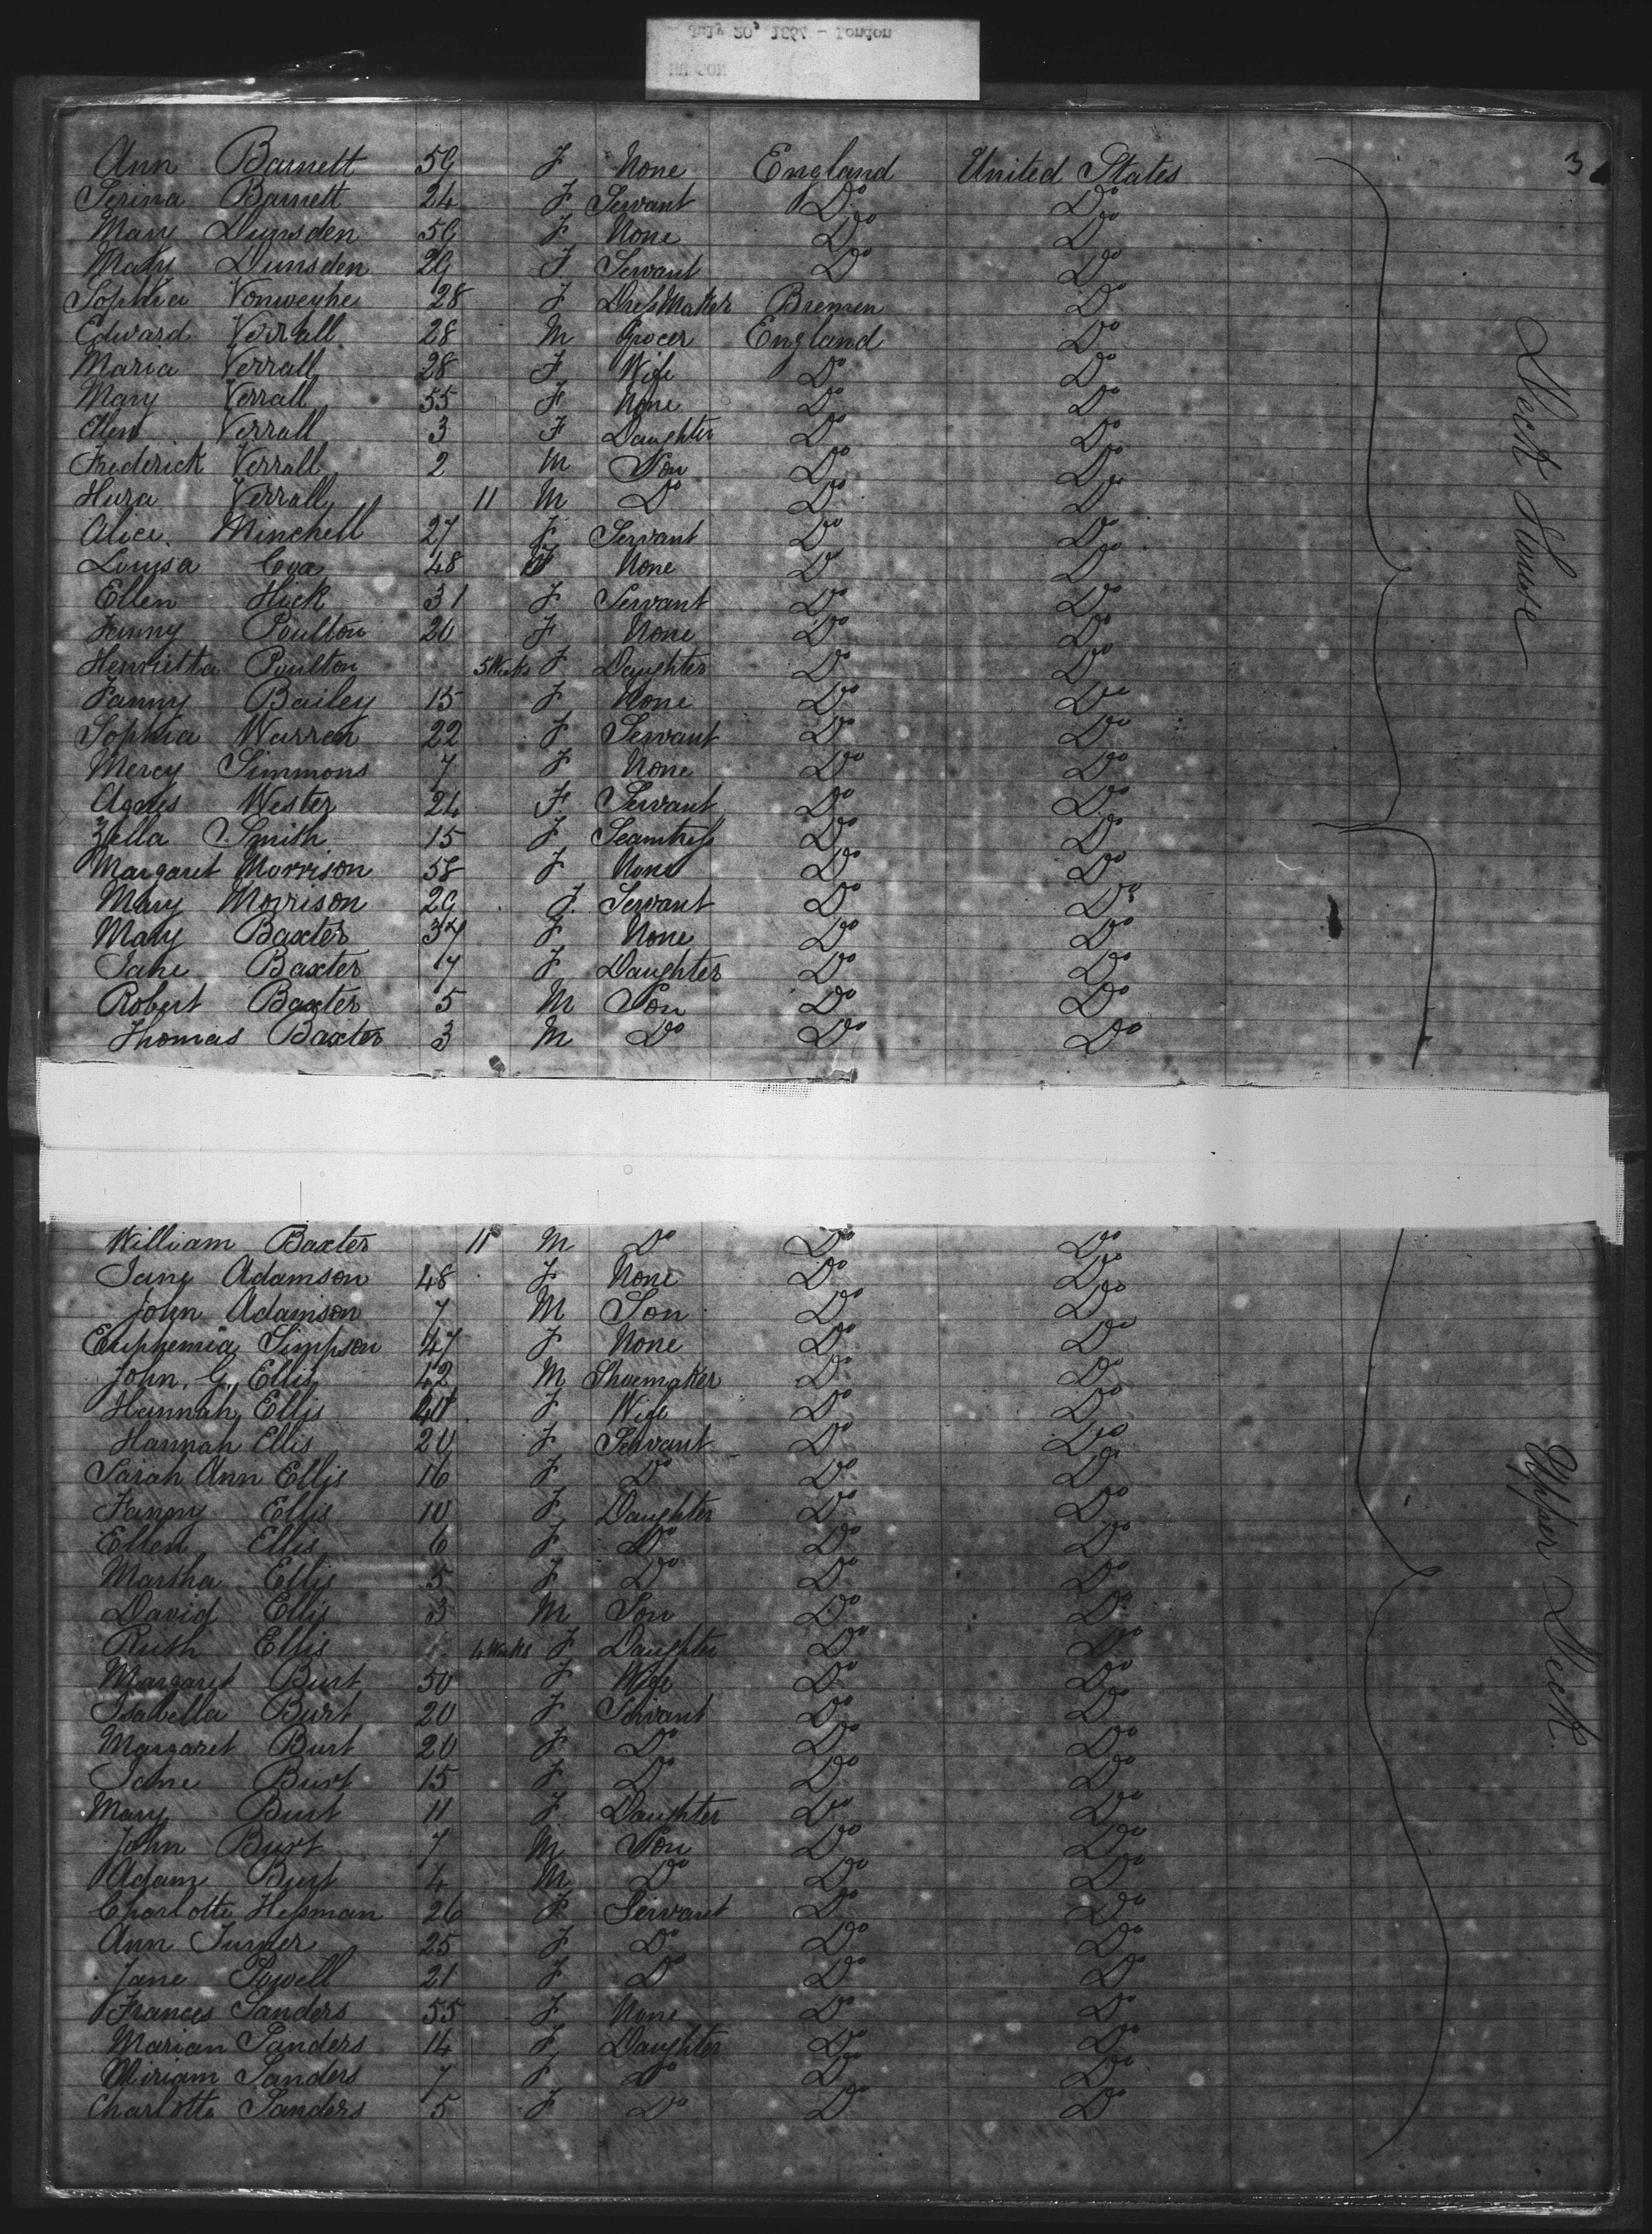 July 20, 1867 - London
3
Ann Barnett 59 F None England United States
Serina Barnett 24 F Servant Do Do
Mary Dunsden 56 F None Do Do
Mary Dunsden 29 F Servant Do Do
Sophia Vonweyhe 28 F DressMaker Bremen Do
Edward Verrall 28 M Grocer England Do
Maria Verrall 28 F Wife Do Do
Mary Verrall 55 F None Do Do
Ellen Verrall 3 F Daughter Do Do
Frederick Verrall 2 M Son Do Do
Hura Verrall 11 M Do Do Do
Alice Minchell 27 F Servant Do Do
Louisa Cox 48 F None Do Do
Ellen Hick 31 F Servant Do Do
Fanny Poulton 20 F None Do Do
Henrietta Poulton 5 Weeks F Daughter Do Do
Fanny Bailey 15 F None Do Do
Sophia Warren 22 F Servant Do Do
Mercy Simmons 7 F None Do Do
Agnes Wester 24 F Servant Do Do
Zella Smith 15 F Seamtress Do Do
Margaret Morrison 58 F None Do Do
Mary Morrison 29 F. Servant Do Do
Mary Baxter 37 F None Do Do
Jane Baxter 7 F Daughter Do Do
Robert Baxter 5 M Son Do Do
Thomas Baxter 3 M Do Do Do
Deck House
William Baxter 11 M Do Do Do
Jane Adamson 48 F None Do Do
John Adamson 7 M Son Do Do
Euphemia Simpson 47 F None Do Do
John. G. Ellis 42 M Shoemaker Do Do
Hannah Ellis F Wife Do Do
Hannah Ellis 20 F Servant Do Do
Sarah Ann Ellis 16 F Do Do Do
Fanny Ellis 10 F Daughter Do Do
Ellen Ellis 6 F Do Do Do
Martha Ellis 5 F Do Do Do
David Ellis 3 M Son Do Do
Ruth Ellis 4 Weeks F Daughter Do Do
Margaret Burt 50 F Wife Do Do
Isabella Burt 20 F Servant Do Do
Margaret Burt 20 F Do Do Do
Jane Burt 15 F Do Do Do
Mary Burt 11 F Daughter Do Do
John Burt 7 M Son Do Do
Adam Burt 4 M Do Do Do
Charlotte Hessman 26 F Servant Do Do
Ann Turner 25 F Do Do Do
Jane Powell 21 F Do Do Do
Frances Sanders 55 F None Do Do
Marian Sanders 14 F Daughter Do Do
Miriam Sanders 7 F Do Do Do
Charlotte Sanders 5 F Do Do Do
Upper Deck